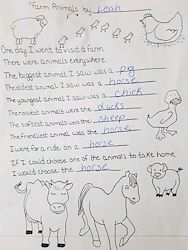 "Farm Animals by Leah
One day I went to visit a farm.
There were animals everywhere.
The biggest animal I saw was a pig
The oldest animal I saw was a horse
The youngest animal I saw was a chick
The noisiest animals were the ducks
The softest animals were the sheep
The friendliest animal was the horse
I went for a ride on a horse
If I could choose one of the animals to take home,
I would choose the horse